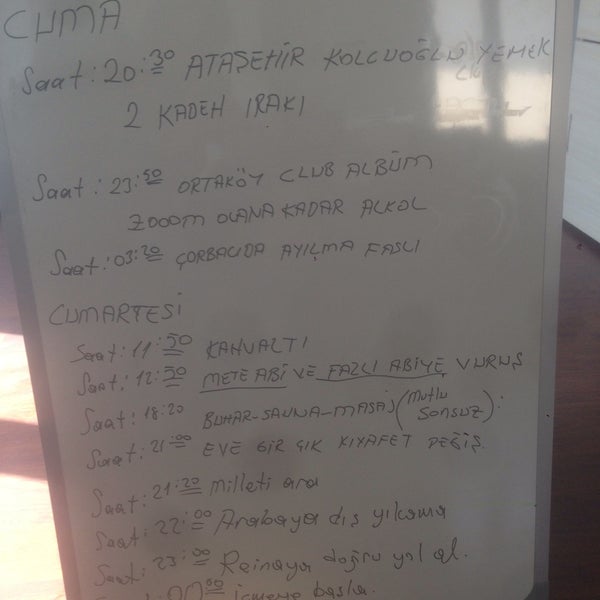 CUMA
Saat: 20:30 ATAŞEHİR KOLCUOĞLU YEMEK
2 KADEH IRAKI
Saat: 23:50 ORTAKÖY CLUB ALBÜM
ZOOOM OLANA KADAR ALKOL
Saat: 03:20 ÇORBACIDA AYILMA FASLI
CUMARTESİ
Saat: 11:50 KAHVALTI
Saat: 12:50 METE ABİ VE FAZLI ABİYE VURUŞ
Saat: 18:20 BUHAR-SAUNA-MASAJ (Mutlu Sonsuz):
Saat: 21:00 EVE GİR ÇIK KIYAFET DEĞİŞ.
Saat: 21:20 Milleti ara
Saat: 22:00 Arabaya dış yıkama
Saat: 23:00 Reinaya doğru yol al.
Saat: 00:00 içmeye başla.